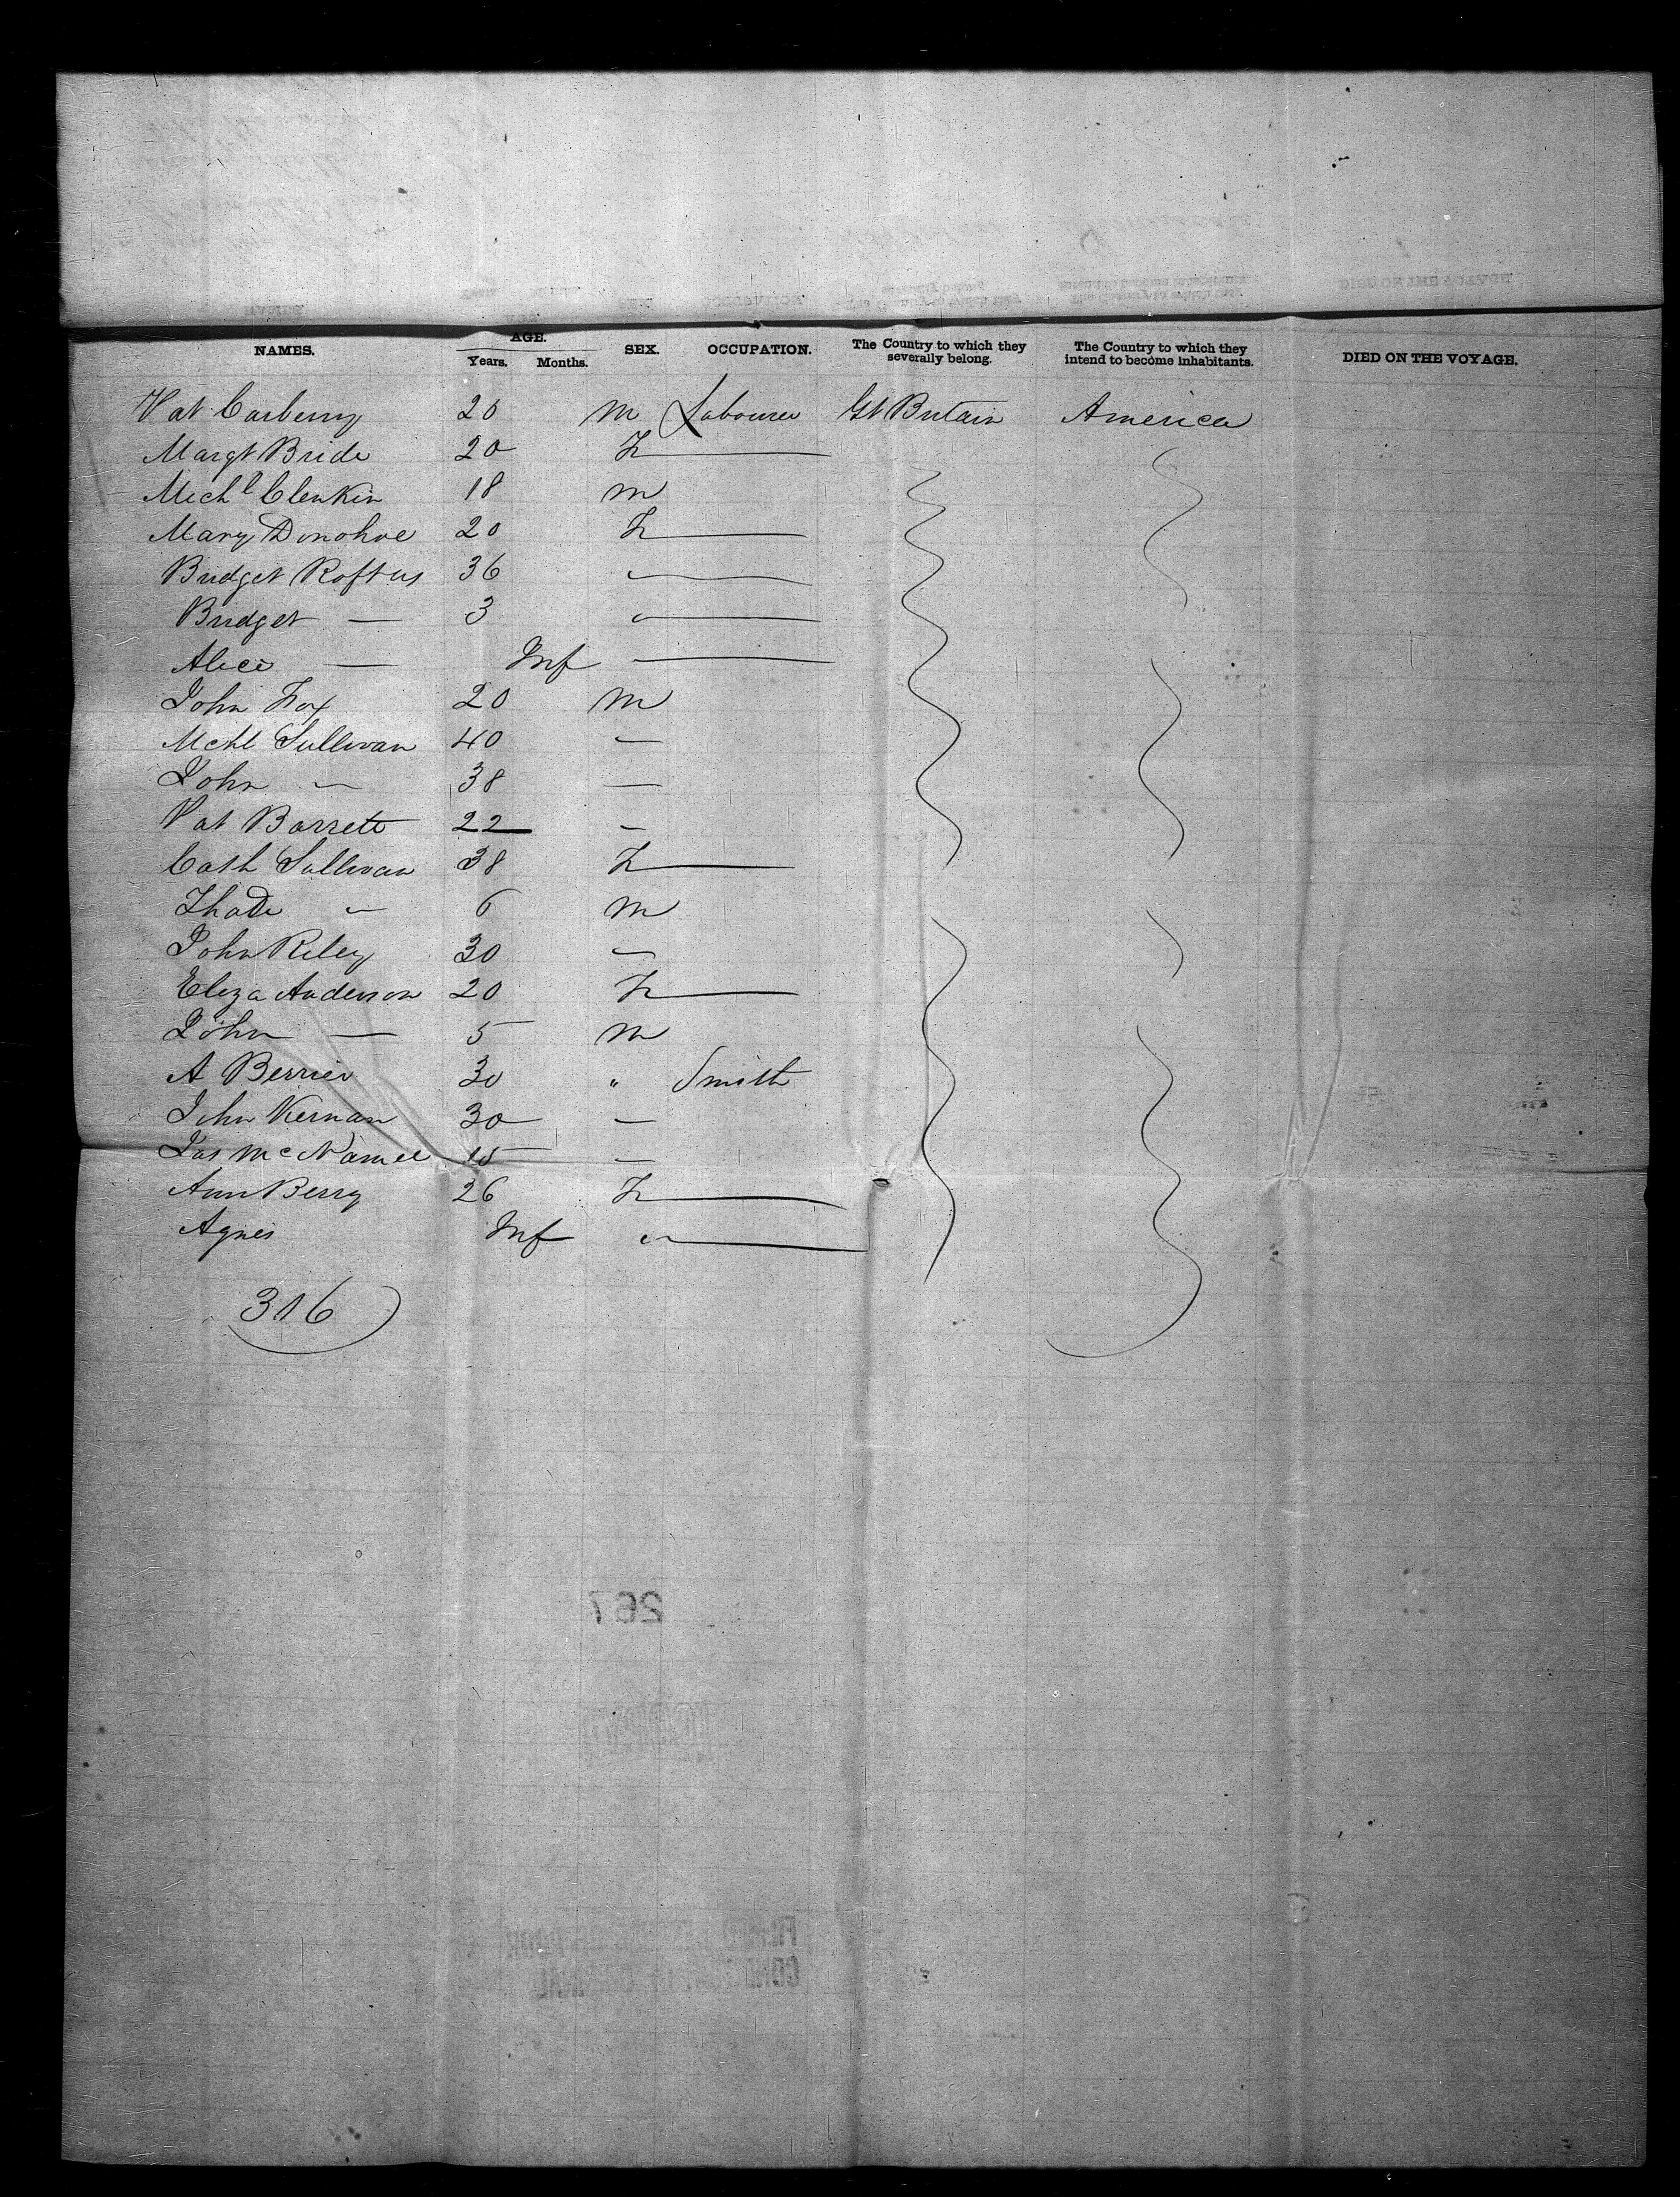 NAMES. AGE. Years. Months. SEX. OCCUPATION. The Country to which they severally belong. The Country to which they intend to become inhabitants. DIED ON THE VOYAGE.
Pat Carberry 20 M Labourer Gt Britain America
Margt Bride 20 F
Michl Clenkin 18 M
Mary Donohoe 20 F
Bridget Roftus 36 "
Bridget — 3 "
Alice — Inf —
John Fox 20 M
Mchl Sullivan 40 —
John " 38 —
Pat Barrett 22 —
Cath Sullivan 38 F
Thade " 6 M
John Riley 30 "
Eliza Anderson 20 F
John — 5 M
A Berrier 30 " Smith
John Kernan 30 —
Jas McNamee 15 —
Ann Berry 26 F
Agnes Inf "
316
267